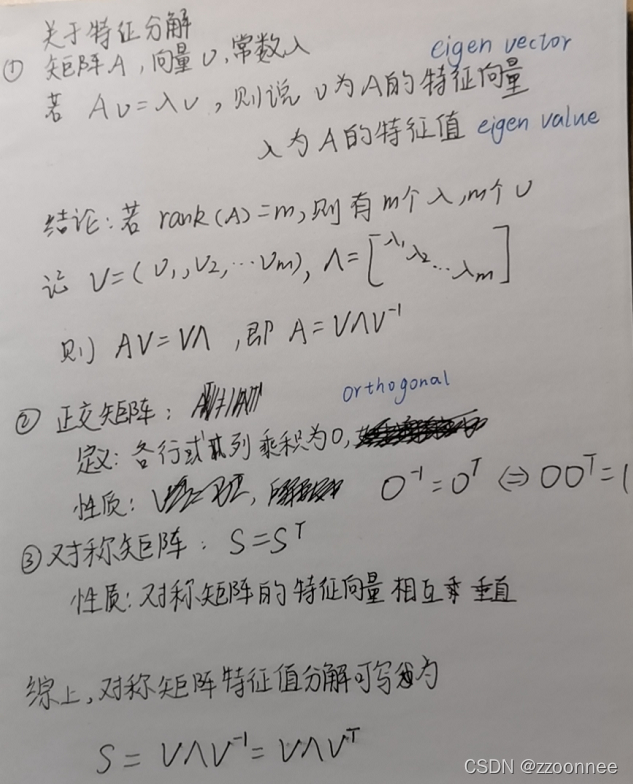 关于特征分解
① 矩阵A,向量υ,常数λ
eigen vector
若 Aυ=λυ,则说 υ为A的特征向量
λ为A的特征值 eigen value
结论:若 rank(A)=m,则有m个λ,m个υ
记 V=(υ₁,υ₂,…υm), Λ=[λ₁ λ₂ … λm]
则 AV=VΛ,即 A=VΛV⁻¹
② 正交矩阵: orthogonal
定义:各行或列乘积为0,
性质: O⁻¹=Oᵀ ⇔ OOᵀ=1
③对称矩阵: S=Sᵀ
性质:对称矩阵的特征向量相互垂直
综上,对称矩阵特征值分解可写为
S = VΛV⁻¹ = VΛVᵀ
CSDN @zzoonnee